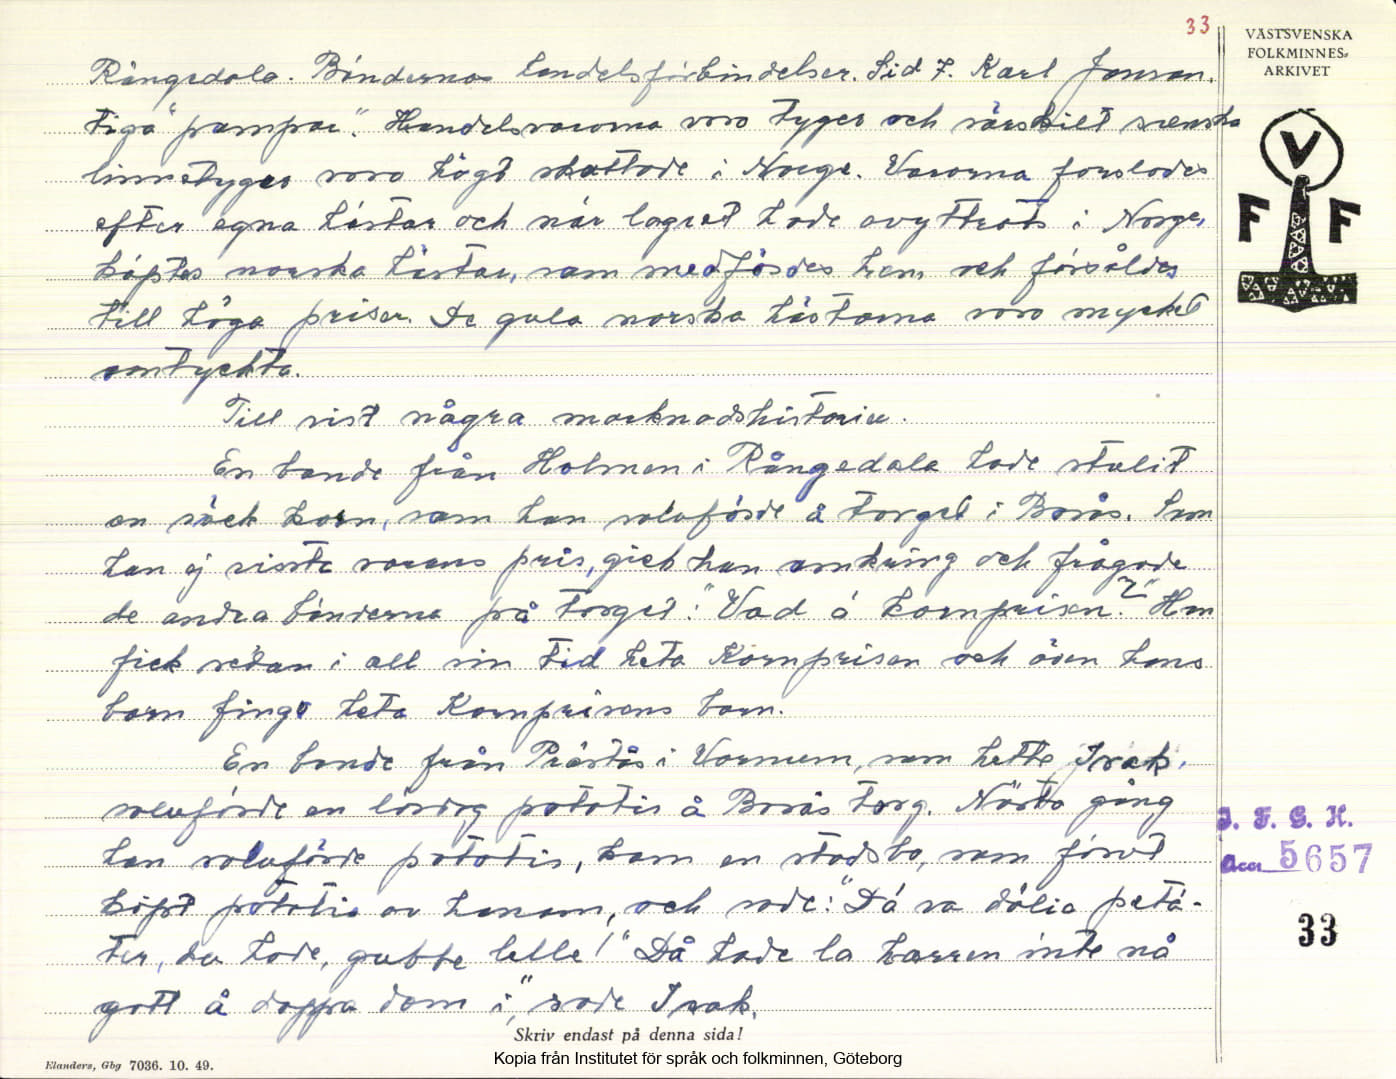 33
VÄSTSVENSKA
FOLKMINNES-
ARKIVET
V
F F
Rångedala. Böndernas handelsförbindelser. Sid 7. Karl Jonson.
tiga "pampar". Handelsvarorna voro tyger och särskilt svenska
linnetyger voro högt skattade i Norge. Varorna forslades
efter egna hästar och när lagret hade avyttrats i Norge,
köptes norska hästar, som medfördes hem och försåldes
till höga priser. De gula norska hästarna voro mycket
omtyckta.
Till sist några marknadshistorier.
En bonde från Holmen i Rångedala hade stulit
en säck korn, som han saluförde å torget i Borås. Som
han ej visste varans pris, gick han omkring och frågade
de andra bönderna på torget: "Vad ä kornprisen?" Han
fick sedan i all sin tid heta Kornprisen och även hans
barn fingo heta Kornprisens barn.
En bonde från Prästås i Varnum, som hette Isak,
saluförde en lördag potatis å Borås torg. Nästa gång
han saluförde potatis, kom en stadsbo, som förut
köpt potatis av honom, och sade: "Dä va dålia petä-
ter, du hade, gubbe lelle!" "Då hade la herren inte nå
gott å doppa dom i," sade Isak.
I. F. G. H.
acc. 5657
33
Skriv endast på denna sida!
Elanders, Gbg 7036. 10. 49.
Kopia från Institutet för språk och folkminnen, Göteborg